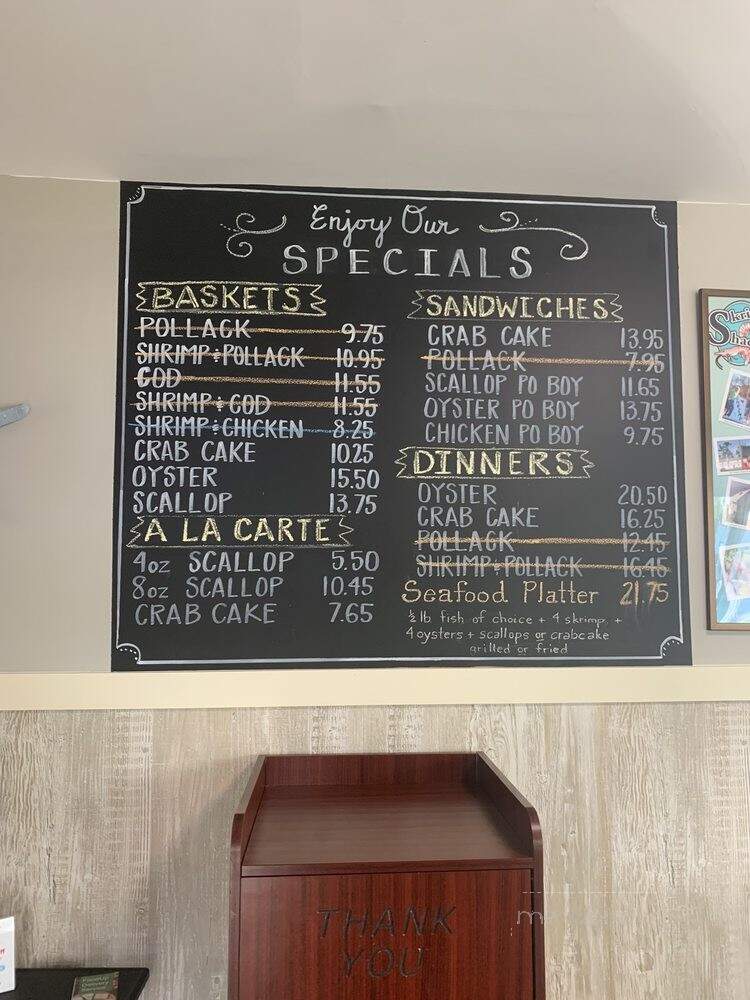 Enjoy Our
SPECIALS
BASKETS
POLLACK 9.75
SHRIMP & POLLACK 10.95
COD 11.55
SHRIMP & COD 11.55
SHRIMP & CHICKEN 8.25
CRAB CAKE 10.25
OYSTER 15.50
SCALLOP 13.75
A LA CARTE
4oz SCALLOP 5.50
8oz SCALLOP 10.45
CRAB CAKE 7.65
SANDWICHES
CRAB CAKE 13.95
POLLACK 7.95
SCALLOP PO BOY 11.65
OYSTER PO BOY 13.75
CHICKEN PO BOY 9.75
DINNERS
OYSTER 20.50
CRAB CAKE 16.25
POLLACK 12.45
SHRIMP & POLLACK 16.45
Seafood Platter 21.75
½ lb fish of choice + 4 skrimp +
4 oysters + scallops or crabcake
grilled or fried
THANK
YOU